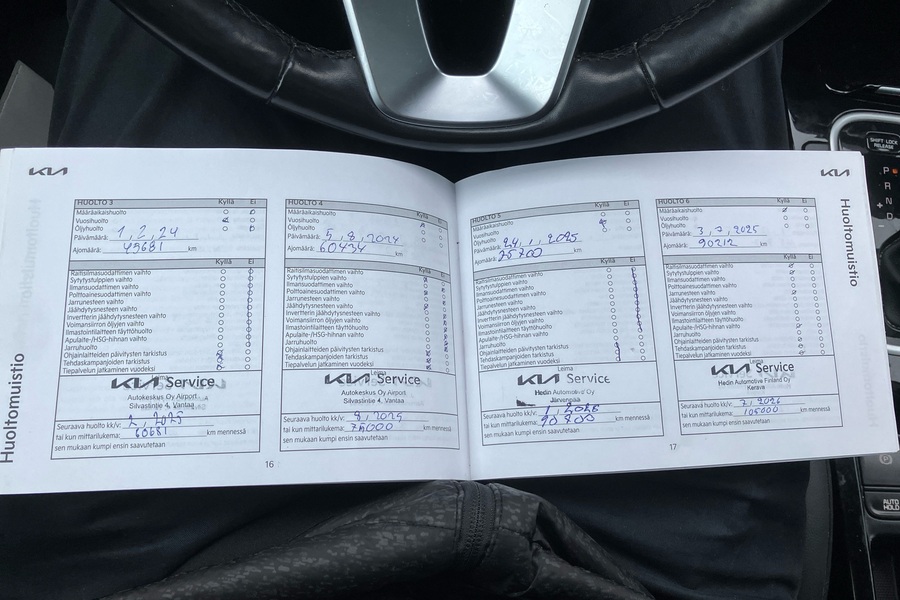 KIA
HUOLTO 3 Kyllä Ei
Määräaikaishuolto
Vuosihuolto
Öljyhuolto
Päivämäärä: 1, 2, 24
Ajomäärä: 49681 km
Kyllä Ei
Raitisilmasuodattimen vaihto
Sytytystulppien vaihto
Ilmansuodattimen vaihto
Polttoainesuodattimen vaihto
Jarrunesteen vaihto
Jäähdytysnesteen vaihto
Invertterin jäähdytysnesteen vaihto
Voimansiirron öljyjen vaihto
Ilmastointilaitteen täyttöhuolto
Apulaite-/HSG-hihnan vaihto
Jarruhuolto
Ohjainlaitteiden päivitysten tarkistus
Tehdaskampanjoiden tarkistus
Tiepalvelun jatkaminen vuodeksi
KIA Service
Autokeskus Oy Airport
Silvastintie 4, Vantaa
Seuraava huolto kk/v: 2, 2025
tai kun mittarilukema: 60681 km mennessä
sen mukaan kumpi ensin saavutetaan
Huoltomuistio
16
HUOLTO 4 Kyllä Ei
Määräaikaishuolto
Vuosihuolto
Öljyhuolto
Päivämäärä: 5, 8, 2024
Ajomäärä: 60434 km
Kyllä Ei
Raitisilmasuodattimen vaihto
Sytytystulppien vaihto
Ilmansuodattimen vaihto
Polttoainesuodattimen vaihto
Jarrunesteen vaihto
Jäähdytysnesteen vaihto
Invertterin jäähdytysnesteen vaihto
Voimansiirron öljyjen vaihto
Ilmastointilaitteen täyttöhuolto
Apulaite-/HSG-hihnan vaihto
Jarruhuolto
Ohjainlaitteiden päivitysten tarkistus
Tehdaskampanjoiden tarkistus
Tiepalvelun jatkaminen vuodeksi
Leima
KIA Service
Autokeskus Oy Airport
Silvastintie 4, Vantaa
Seuraava huolto kk/v: 8, 2025
tai kun mittarilukema: 75000 km mennessä
sen mukaan kumpi ensin saavutetaan
HUOLTO 5 Kyllä Ei
Määräaikaishuolto
Vuosihuolto
Öljyhuolto
Päivämäärä: 24, 1, 2025
Ajomäärä: 75700 km
Kyllä Ei
Raitisilmasuodattimen vaihto
Sytytystulppien vaihto
Ilmansuodattimen vaihto
Polttoainesuodattimen vaihto
Jarrunesteen vaihto
Jäähdytysnesteen vaihto
Invertterin jäähdytysnesteen vaihto
Voimansiirron öljyjen vaihto
Ilmastointilaitteen täyttöhuolto
Apulaite-/HSG-hihnan vaihto
Jarruhuolto
Ohjainlaitteiden päivitysten tarkistus
Tehdaskampanjoiden tarkistus
Tiepalvelun jatkaminen vuodeksi
KIA Service
Hedin Automotive Oy
Järvenpää
Seuraava huolto kk/v: 1, 2026
tai kun mittarilukema: 90700 km mennessä
sen mukaan kumpi ensin saavutetaan
17
KIA
HUOLTO 6 Kyllä Ei
Määräaikaishuolto
Vuosihuolto
Öljyhuolto
Päivämäärä: 3, 7, 2025
Ajomäärä: 90212 km
Kyllä Ei
Raitisilmasuodattimen vaihto
Sytytystulppien vaihto
Ilmansuodattimen vaihto
Polttoainesuodattimen vaihto
Jarrunesteen vaihto
Jäähdytysnesteen vaihto
Invertterin jäähdytysnesteen vaihto
Voimansiirron öljyjen vaihto
Ilmastointilaitteen täyttöhuolto
Apulaite-/HSG-hihnan vaihto
Jarruhuolto
Ohjainlaitteiden päivitysten tarkistus
Tehdaskampanjoiden tarkistus
Tiepalvelun jatkaminen vuodeksi
Leima
KIA Service
Hedin Automotive Finland Oy
Kerava
Seuraava huolto kk/v: 7, 2026
tai kun mittarilukema: 105000 km mennessä
sen mukaan kumpi ensin saavutetaan
Huoltomuistio
SHIFT LOCK
RELEASE
P
R
N
D
+
AUTO
HOLD